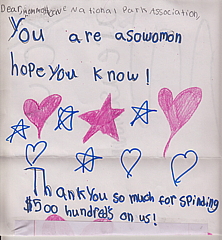 Dear Mammoth Cave National Park Association,
You are asowoman
hope you know!
Thank You so much for spinding
$500 hundred's on us!